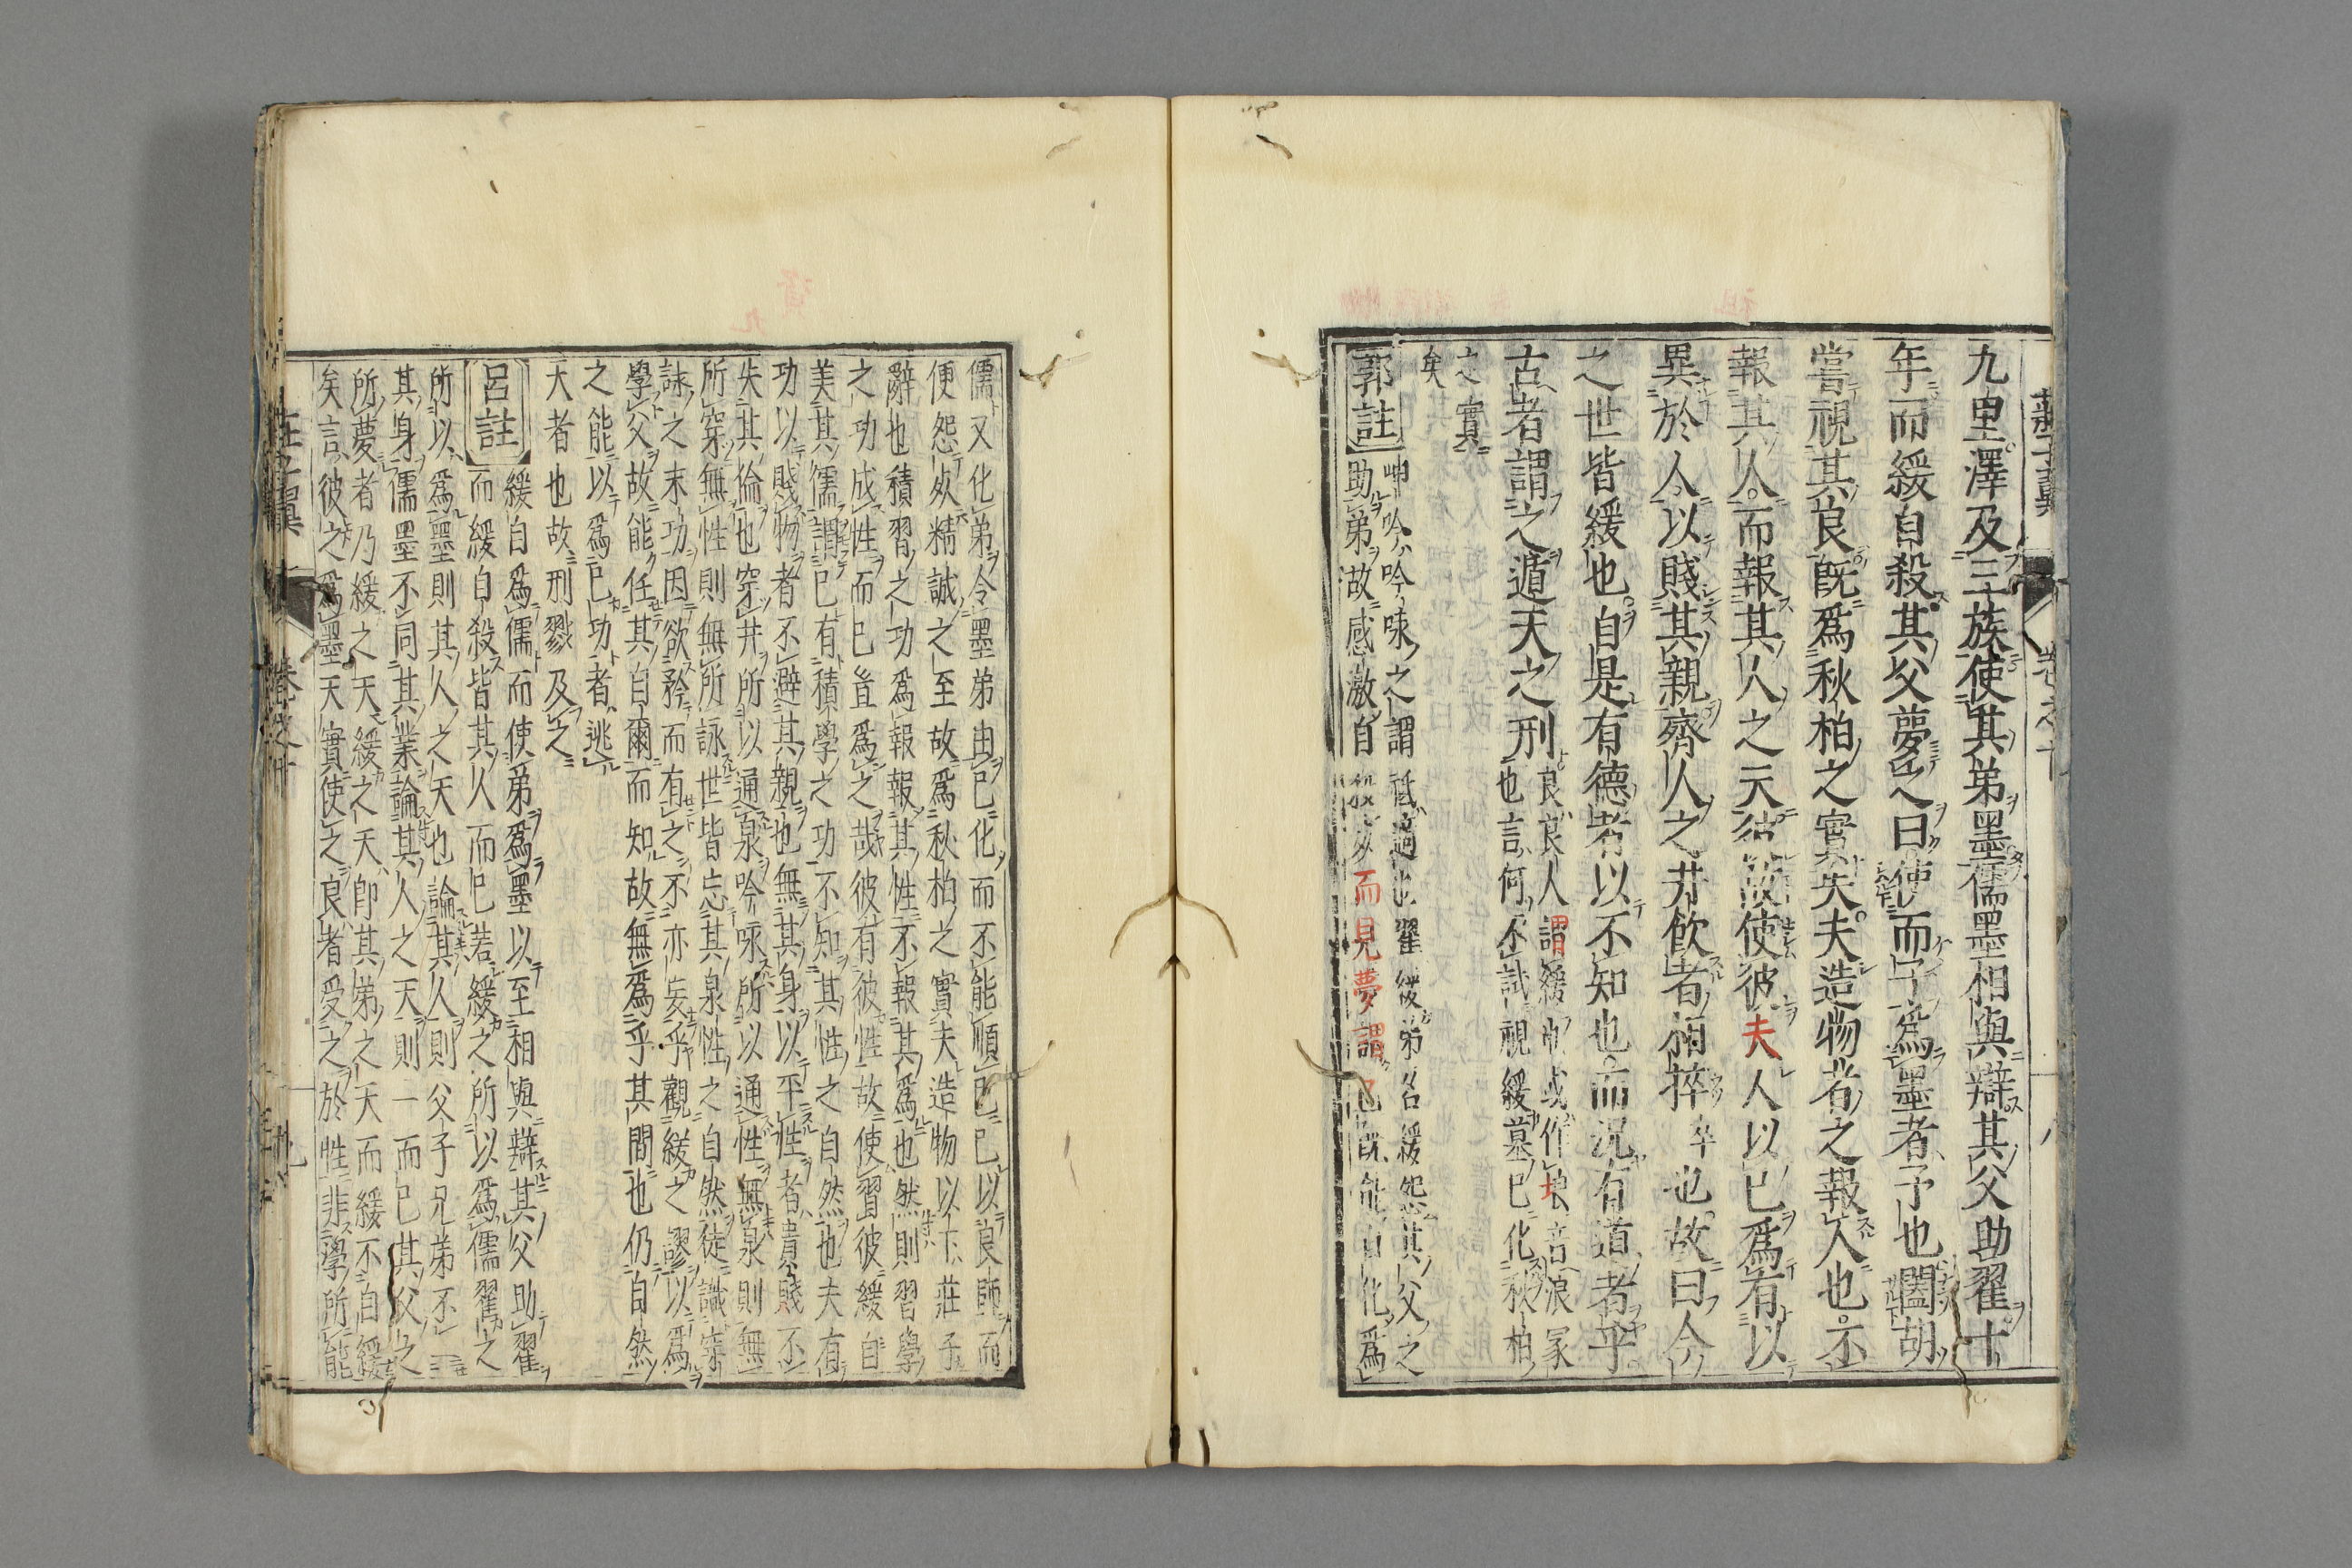 莊子翼　卷之十　八
九里澤及三族使其弟墨儒墨相與辯其父助翟十
年而緩自殺其父夢之曰使而子爲墨者予也闔胡
嘗視其良旣爲秋柏之實矣夫造物者之報人也不
報其人而報其人之天彼故使彼夫人以己爲有以
異於人以賤其親齊人之井飲者相捽卒也故曰今
之世皆緩也自是有德者以不知也而況有道者乎
古者謂之遁天之刑
良良人謂緩也或作埌音浪冢
也言何不試視緩墓已化秋柏
之實
矣
郭註
呻吟吟咏之謂祗適也翟緩弟名緩怨其父之
助弟故感激自殺死而見夢謂己旣能自化爲
儒又化弟令墨弟由己化而不能順己己以良師而
便怨死精誠之至故爲秋柏之實夫造物以下莊子
辭也積習之功爲報報其性不報其爲也然則習學
之功成性而已豈爲之哉彼有彼性故使習彼緩自
美其儒謂己有積學之功不知其性之自然也夫有
功以賤物者不避其親也無其身以平性者貴賤不
失其倫也穿井所以通泉吟咏所以通性無泉則無
所穿無性則無所詠世皆忘其泉性之自然徒識穿
詠之末功因欲矜而有之不亦妄乎觀緩之謬以爲
學父故能任其自爾而知故無爲乎其間也仍自然
之能以爲己功者逃
天者也故刑戮及之
呂註
緩自爲儒而使弟爲墨以至相與辯其父助翟
而緩自殺皆其人而已若緩之所以爲儒翟之
所以爲墨則其人之天也論其人則父子兄弟不一
其身儒墨不同其業論其人之天則一而已其父之
所夢者乃緩之天緩之天卽其弟之天而緩不自緩
矣言彼之爲墨天實使之良者受之於性非學所能